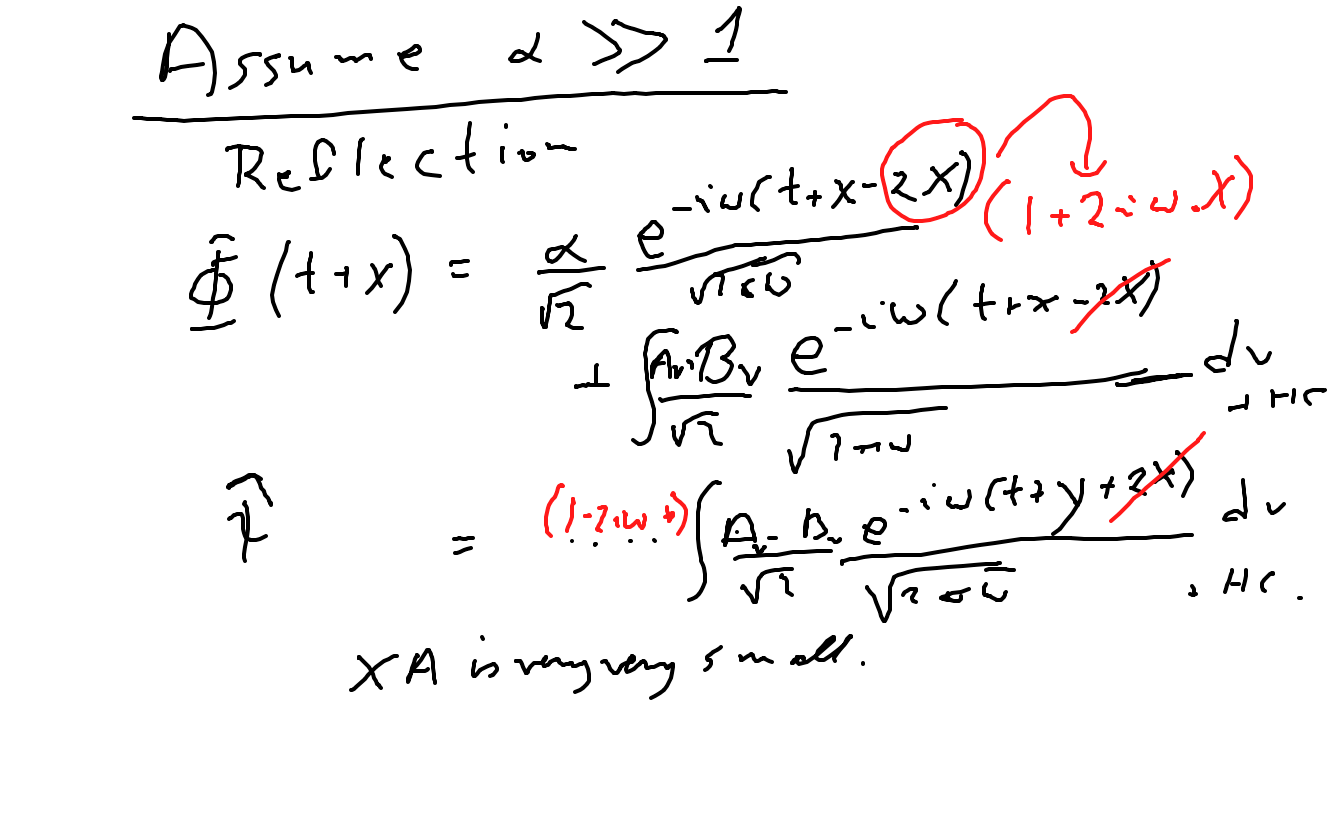 Assume α >> 1
Reflection
Φ̂ (t+x) = α/√2 e^{-iω(t+x-2X)}/√2πω (1+2iω.X)
+ ∫ A_ν+B_ν/√2 e^{-iω(t+x-2X)}/√2πω dν + HC
= (1-2iω) .... ∫ A_ν-B_ν/√2 e^{-iω(t+y+2X)}/√2πω dν . HC.
XA is very very small.